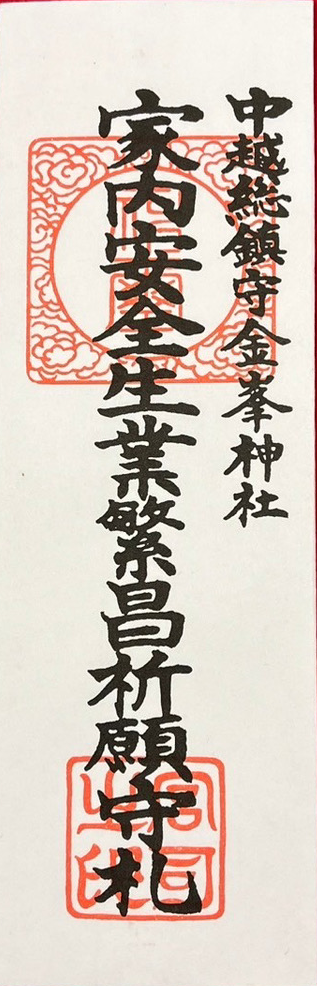 中越総鎮守金峯神社
家内安全生業繁昌祈願守札
宮司之印